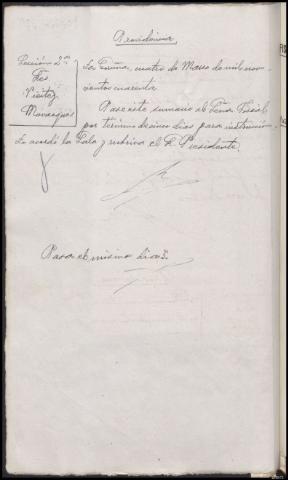 Providencia
Sección 2ª
Fes
Vieitez
Marasqués
La Coruña, cuatro de Marzo de mil nove-
cientos cuarenta.
Pase este sumario al Señor Fiscal
por término de cinco días para instrucción
Lo acordó la Sala y rubrica el Sr Presidente.
Pasa el mismo día.